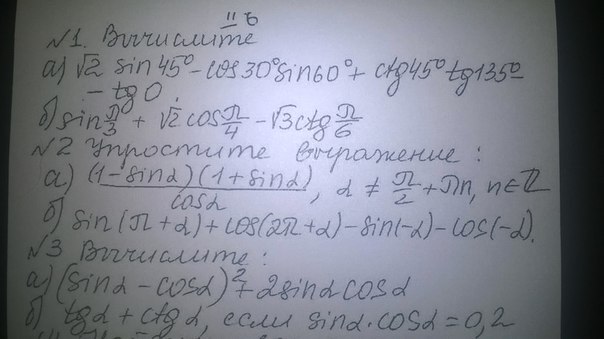 11 б
№1. Вычислите
а) √2 sin 45° - cos 30° sin 60° + ctg 45° tg 135° -
- tg 0.
б) sin π/3 + √2 cos π/4 - √3 ctg π/6
№2 Упростите выражение:
а) (1 - sin α)(1 + sin α) / cos α, α ≠ π/2 + πn, n ∈ Z
б) sin(π + α) + cos(2π + α) - sin(-α) - cos(-α).
№3 Вычислите:
а) (sin α - cos α)² + 2 sin α cos α
б) tg α + ctg α, если sin α · cos α = 0,2